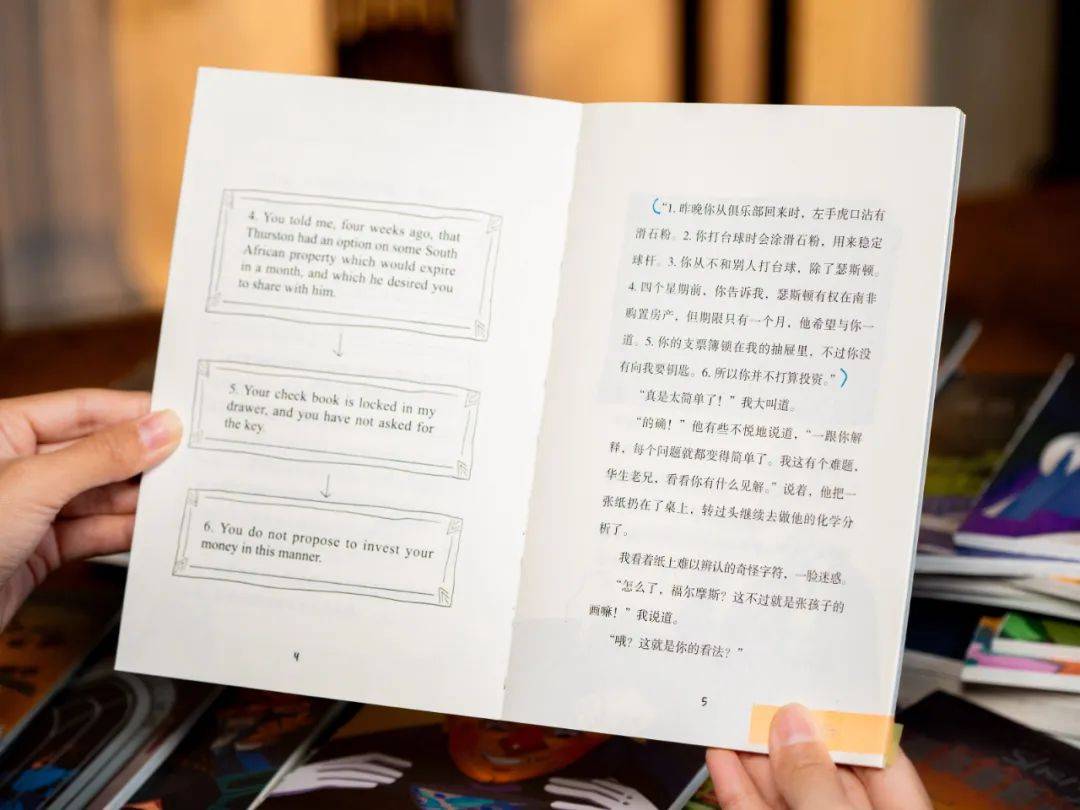 4. You told me, four weeks ago, that
Thurston had an option on some South
African property which would expire
in a month, and which he desired you
to share with him.
5. Your check book is locked in my
drawer, and you have not asked for
the key.
6. You do not propose to invest your
money in this manner.
4
“1. 昨晚你从俱乐部回来时，左手虎口沾有
滑石粉。2. 你打台球时会涂滑石粉，用来稳定
球杆。3. 你从不和别人打台球，除了瑟斯顿。
4. 四个星期前，你告诉我，瑟斯顿有权在南非
购置房产，但期限只有一个月，他希望与你一
道。5. 你的支票簿锁在我的抽屉里，不过你没
有向我要钥匙。6. 所以你并不打算投资。”
“真是太简单了！”我大叫道。
“的确！”他有些不悦地说道，“一跟你解
释，每个问题就都变得简单了。我这有个难题，
华生老兄，看看你有什么见解。”说着，他把一
张纸扔在了桌上，转过头继续去做他的化学分
析了。
我看着纸上难以辨认的奇怪字符，一脸迷惑。
“怎么了，福尔摩斯？这不过就是张孩子的
画嘛！”我说道。
“哦？这就是你的看法？”
5